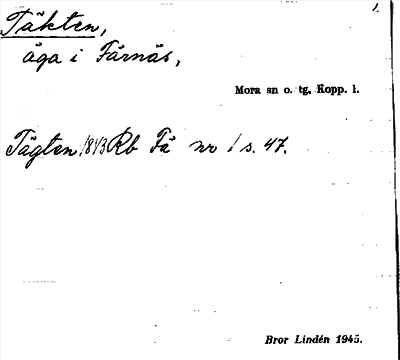 1.
Täkten,
äga i Färnäs,
Mora sn o. tg, Kopp. l.
Tägten 1843 Rb Fä nr 1 s. 47.
Bror Lindén 1945.